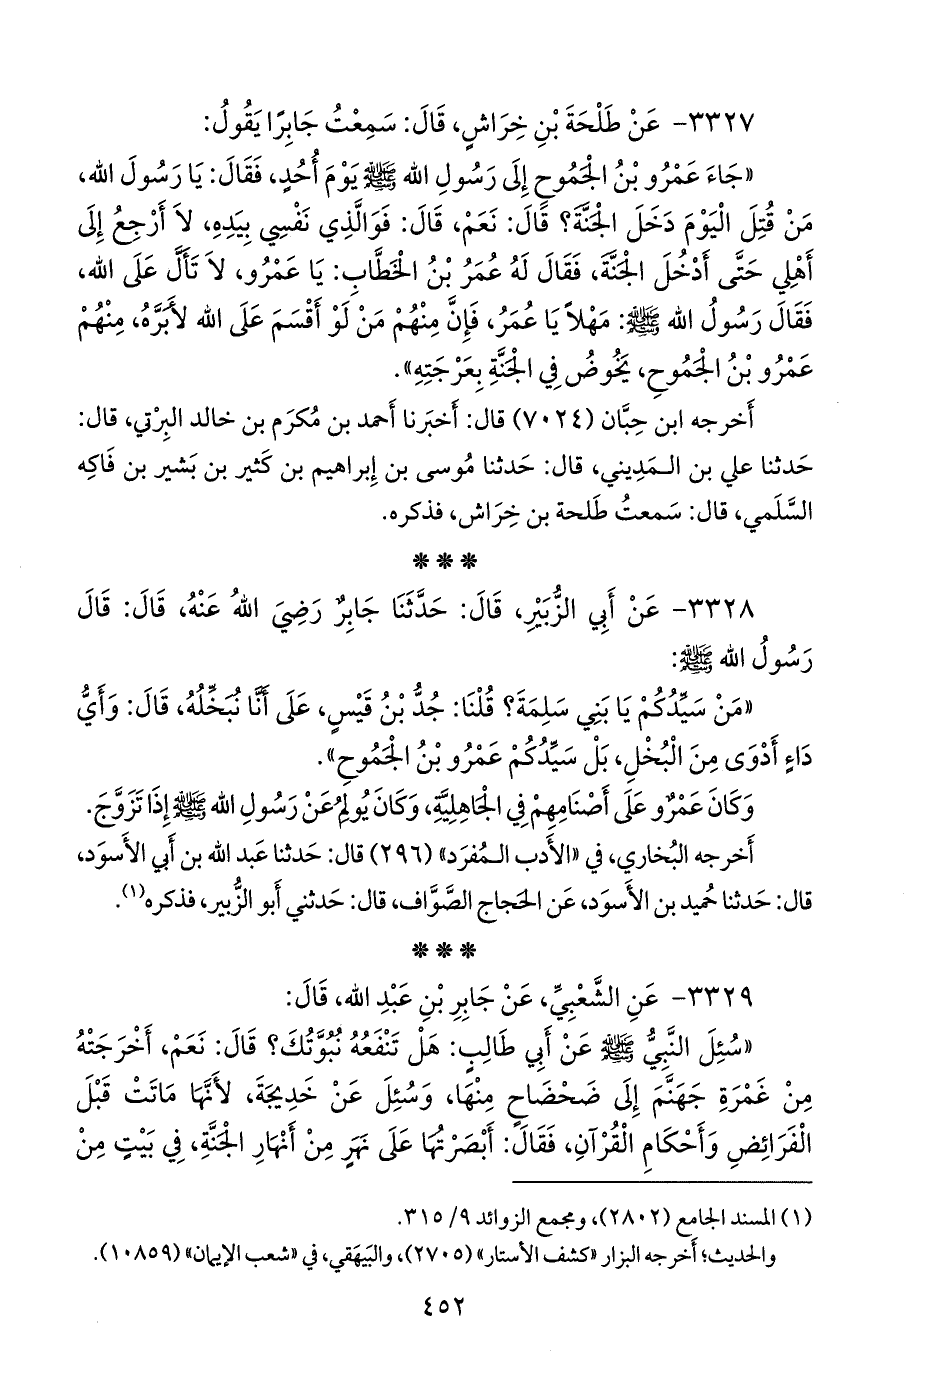 ٣٣٢٧- عَنْ طَلْحَةَ بْنِ خِرَاشٍ، قَالَ: سَمِعْتُ جَابِرًا يَقُولُ:
«جَاءَ عَمْرُو بْنُ الْجَمُوحِ إِلَى رَسُولِ الله ﷺ يَوْمَ أُحُدٍ، فَقَالَ: يَا رَسُولَ الله،
مَنْ قُتِلَ الْيَوْمَ دَخَلَ الْجَنَّةَ؟ قَالَ: نَعَمْ، قَالَ: فَوَالَّذِي نَفْسِي بِيَدِهِ، لاَ أَرْجِعُ إِلَى
أَهْلِي حَتَّى أَدْخُلَ الْجَنَّةَ، فَقَالَ لَهُ عُمَرُ بْنُ الْخَطَّابِ: يَا عَمْرُو، لاَ تَأَلَّ عَلَى الله،
فَقَالَ رَسُولُ الله ﷺ: مَهْلاً يَا عُمَرُ، فَإِنَّ مِنْهُمْ مَنْ لَوْ أَقْسَمَ عَلَى الله لأَبَرَّهُ، مِنْهُمْ
عَمْرُو بْنُ الْجَمُوحِ، يَخُوضُ فِي الْجَنَّةِ بِعَرْجَتِهِ».
أَخرجه ابن حِبَّان (٧٠٢٤) قال: أَخبَرنا أَحمد بن مُكرَم بن خالد البِرْتي، قال:
حَدثنا علي بن المَديني، قال: حَدثنا مُوسى بن إِبراهيم بن كَثير بن بَشير بن فَاكِه
السَّلَمي، قال: سَمعتُ طَلحة بن خِرَاش، فذكره.
* * *
٣٣٢٨- عَنْ أَبِي الزُّبَيْرِ، قَالَ: حَدَّثَنَا جَابِرٌ رَضِيَ اللهُ عَنْهُ، قَالَ: قَالَ
رَسُولُ الله ﷺ:
«مَنْ سَيِّدُكُمْ يَا بَنِي سَلِمَةَ؟ قُلْنَا: جُدُّ بْنُ قَيْسٍ، عَلَى أَنَّا نُبَخِّلُهُ، قَالَ: وَأَيُّ
دَاءٍ أَدْوَى مِنَ الْبُخْلِ، بَلْ سَيِّدُكُمْ عَمْرُو بْنُ الْجَمُوحِ».
وَكَانَ عَمْرٌو عَلَى أَصْنَامِهِمْ فِي الْجَاهِلِيَّةِ، وَكَانَ يُولِمُ عَنْ رَسُولِ الله ﷺ إِذَا تَزَوَّجَ.
أَخرجه البُخاري، في «الأَدب المُفرَد» (٢٩٦) قال: حَدثنا عَبد الله بن أَبي الأَسوَد،
قال: حَدثنا حُميد بن الأَسوَد، عَن الحَجاج الصَّوَّاف، قال: حَدثني أَبو الزُّبير، فذكره(١).
* * *
٣٣٢٩- عَنِ الشَّعْبِيِّ، عَنْ جَابِرِ بْنِ عَبْدِ الله، قَالَ:
«سُئِلَ النَّبِيُّ ﷺ عَنْ أَبِي طَالِبٍ: هَلْ تَنْفَعُهُ نُبُوَّتُكَ؟ قَالَ: نَعَمْ، أَخْرَجَتْهُ
مِنْ غَمْرَةِ جَهَنَّمَ إِلَى ضَحْضَاحٍ مِنْهَا، وَسُئِلَ عَنْ خَدِيجَةَ، لأَنَّهَا مَاتَتْ قَبْلَ
الْفَرَائِضِ وَأَحْكَامِ الْقُرْآنِ، فَقَالَ: أَبْصَرْتُهَا عَلَى نَهَرٍ مِنْ أَنْهَارِ الْجَنَّةِ، فِي بَيْتٍ مِنْ
(١) المسند الجامع (٢٨٠٢)، ومجمع الزوائد ٩/ ٣١٥.
والحديث؛ أَخرجه البزار «كشف الأستار» (٢٧٠٥)، والبَيهَقي، في «شعب الإيمان» (١٠٨٥٩).
٤٥٢